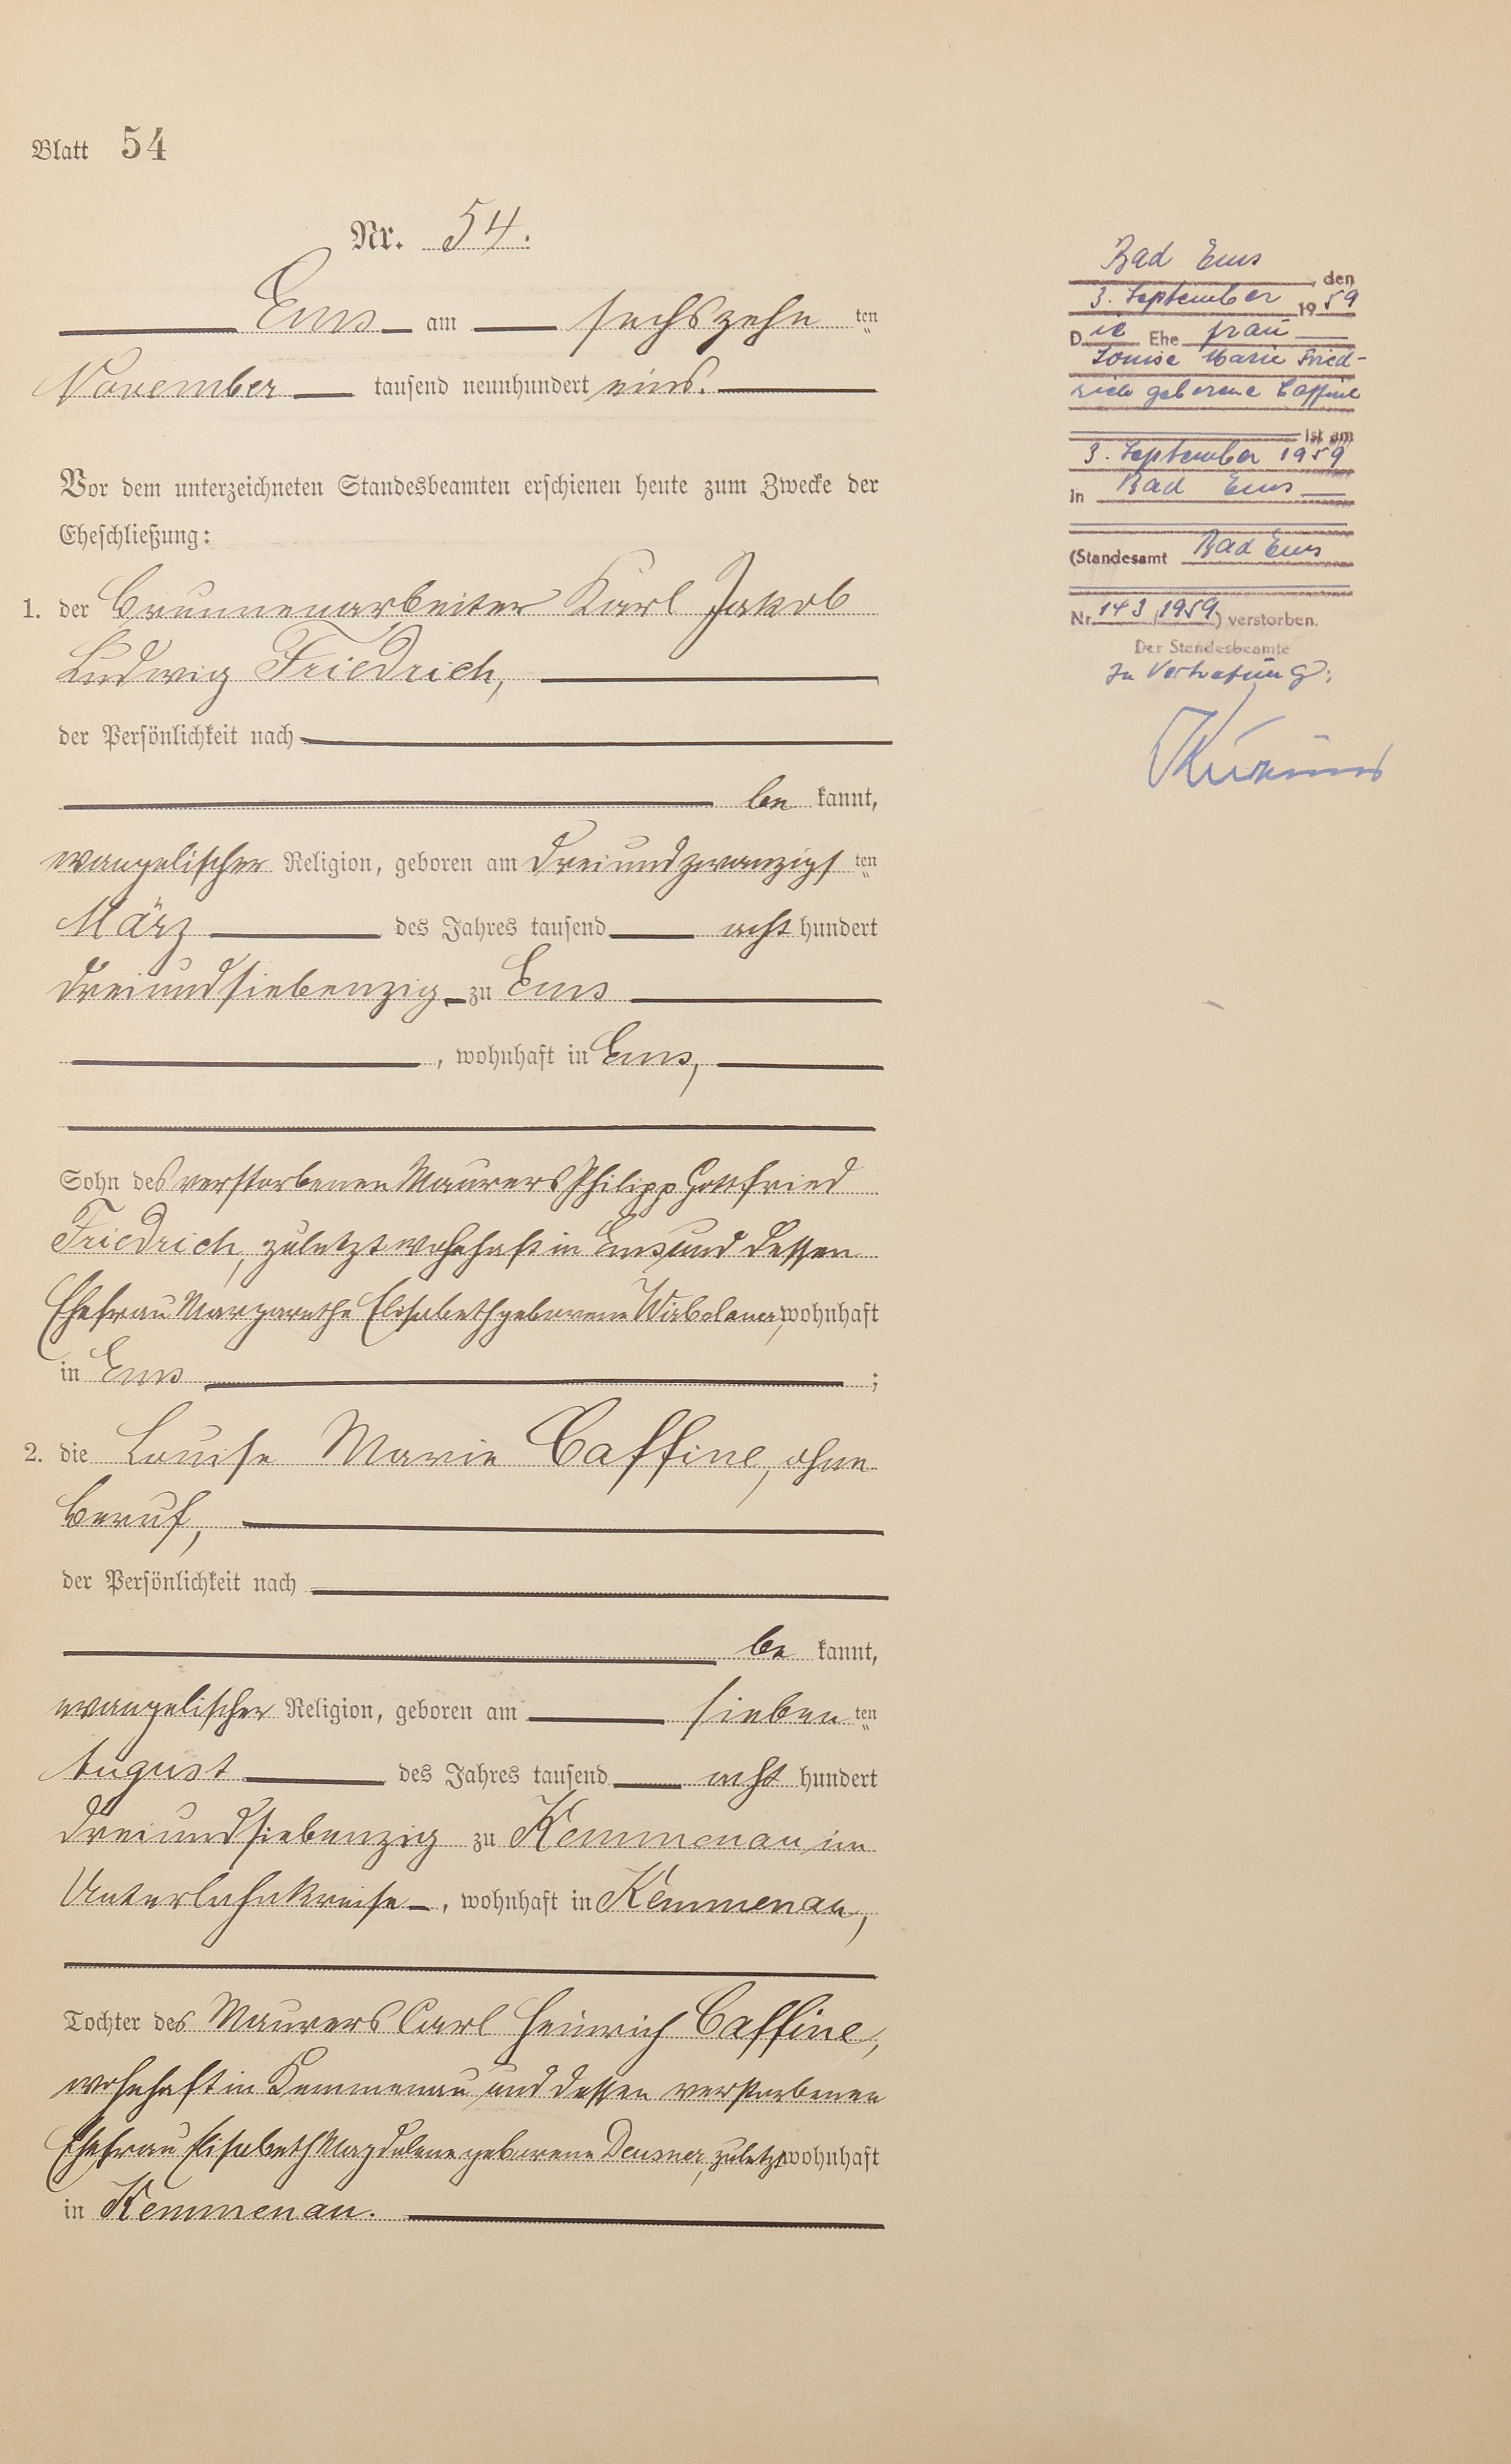 Blatt 54
Nr. 54.
Ems am sechszehn ten
November tausend neunhundert eins.
Vor dem unterzeichneten Standesbeamten erschienen heute zum Zwecke der
Eheschließung:
1. der Brunnenarbeiter Karl Jakob
Ludwig Friedrich,
der Persönlichkeit nach
be kannt,
evangelischer Religion, geboren am dreiundzwanzigs ten
März des Jahres tausend acht hundert
dreiundsiebenzig zu Ems
, wohnhaft in Ems,
Sohn des verstorbenen Maurers Philipp Gottfried
Friedrich, zuletzt wohnhaft in Ems und dessen
Ehefrau Margarethe Elisabeth geborene Wirbelauer, wohnhaft
in Ems ;
2. die Louise Marie Caffine, ohne
Beruf,
der Persönlichkeit nach
be kannt,
evangelischer Religion, geboren am sieben ten
August des Jahres tausend acht hundert
dreiundsiebenzig zu Kemmenau im
Unterlahnkreise , wohnhaft in Kemmenau,
Tochter des Maurers Carl Heinrich Caffine,
wohnhaft in Kemmenau und dessen verstorbenen
Ehefrau Elisabeth Magdalene geborene Deusner, zuletzt wohnhaft
in Kemmenau.
Bad Ems , den
3. September 19 59
D ie Ehe frau
Louise Marie Fried-
rich geborene Caffine
ist am
3. September 1959
in Bad Ems
(Standesamt Bad Ems
Nr. 143/1959) verstorben.
Der Standesbeamte
In Vertretung: